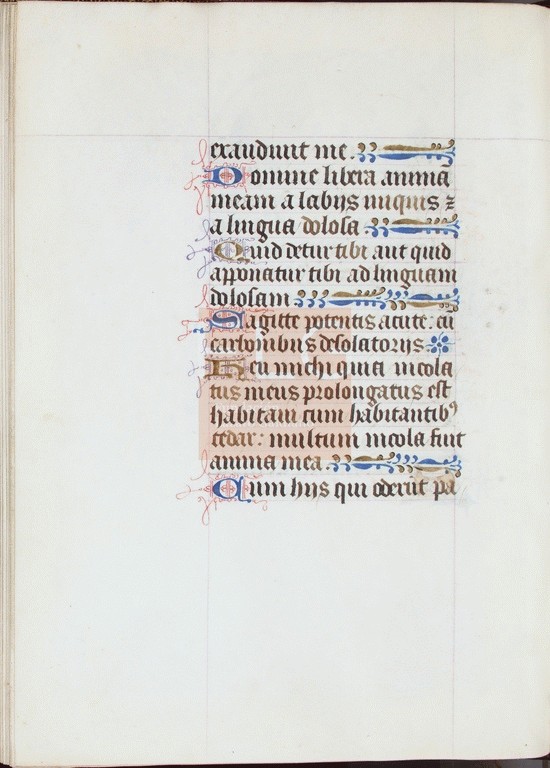 exaudiuit me.
Domine libera animā
meam a labijs iniquis ⁊
a lingua dolosa
Quid detur tibi aut quid
apponatur tibi ad linguam
dolosam
Sagitte potentis acute: cū
carbonibus desolatorijs
Heu michi quia incola
tus meus prolongatus est
habitaui cum habitantibꝰ
cedar: multum incola fuit
anima mea.
Cum hijs qui oderūt pa